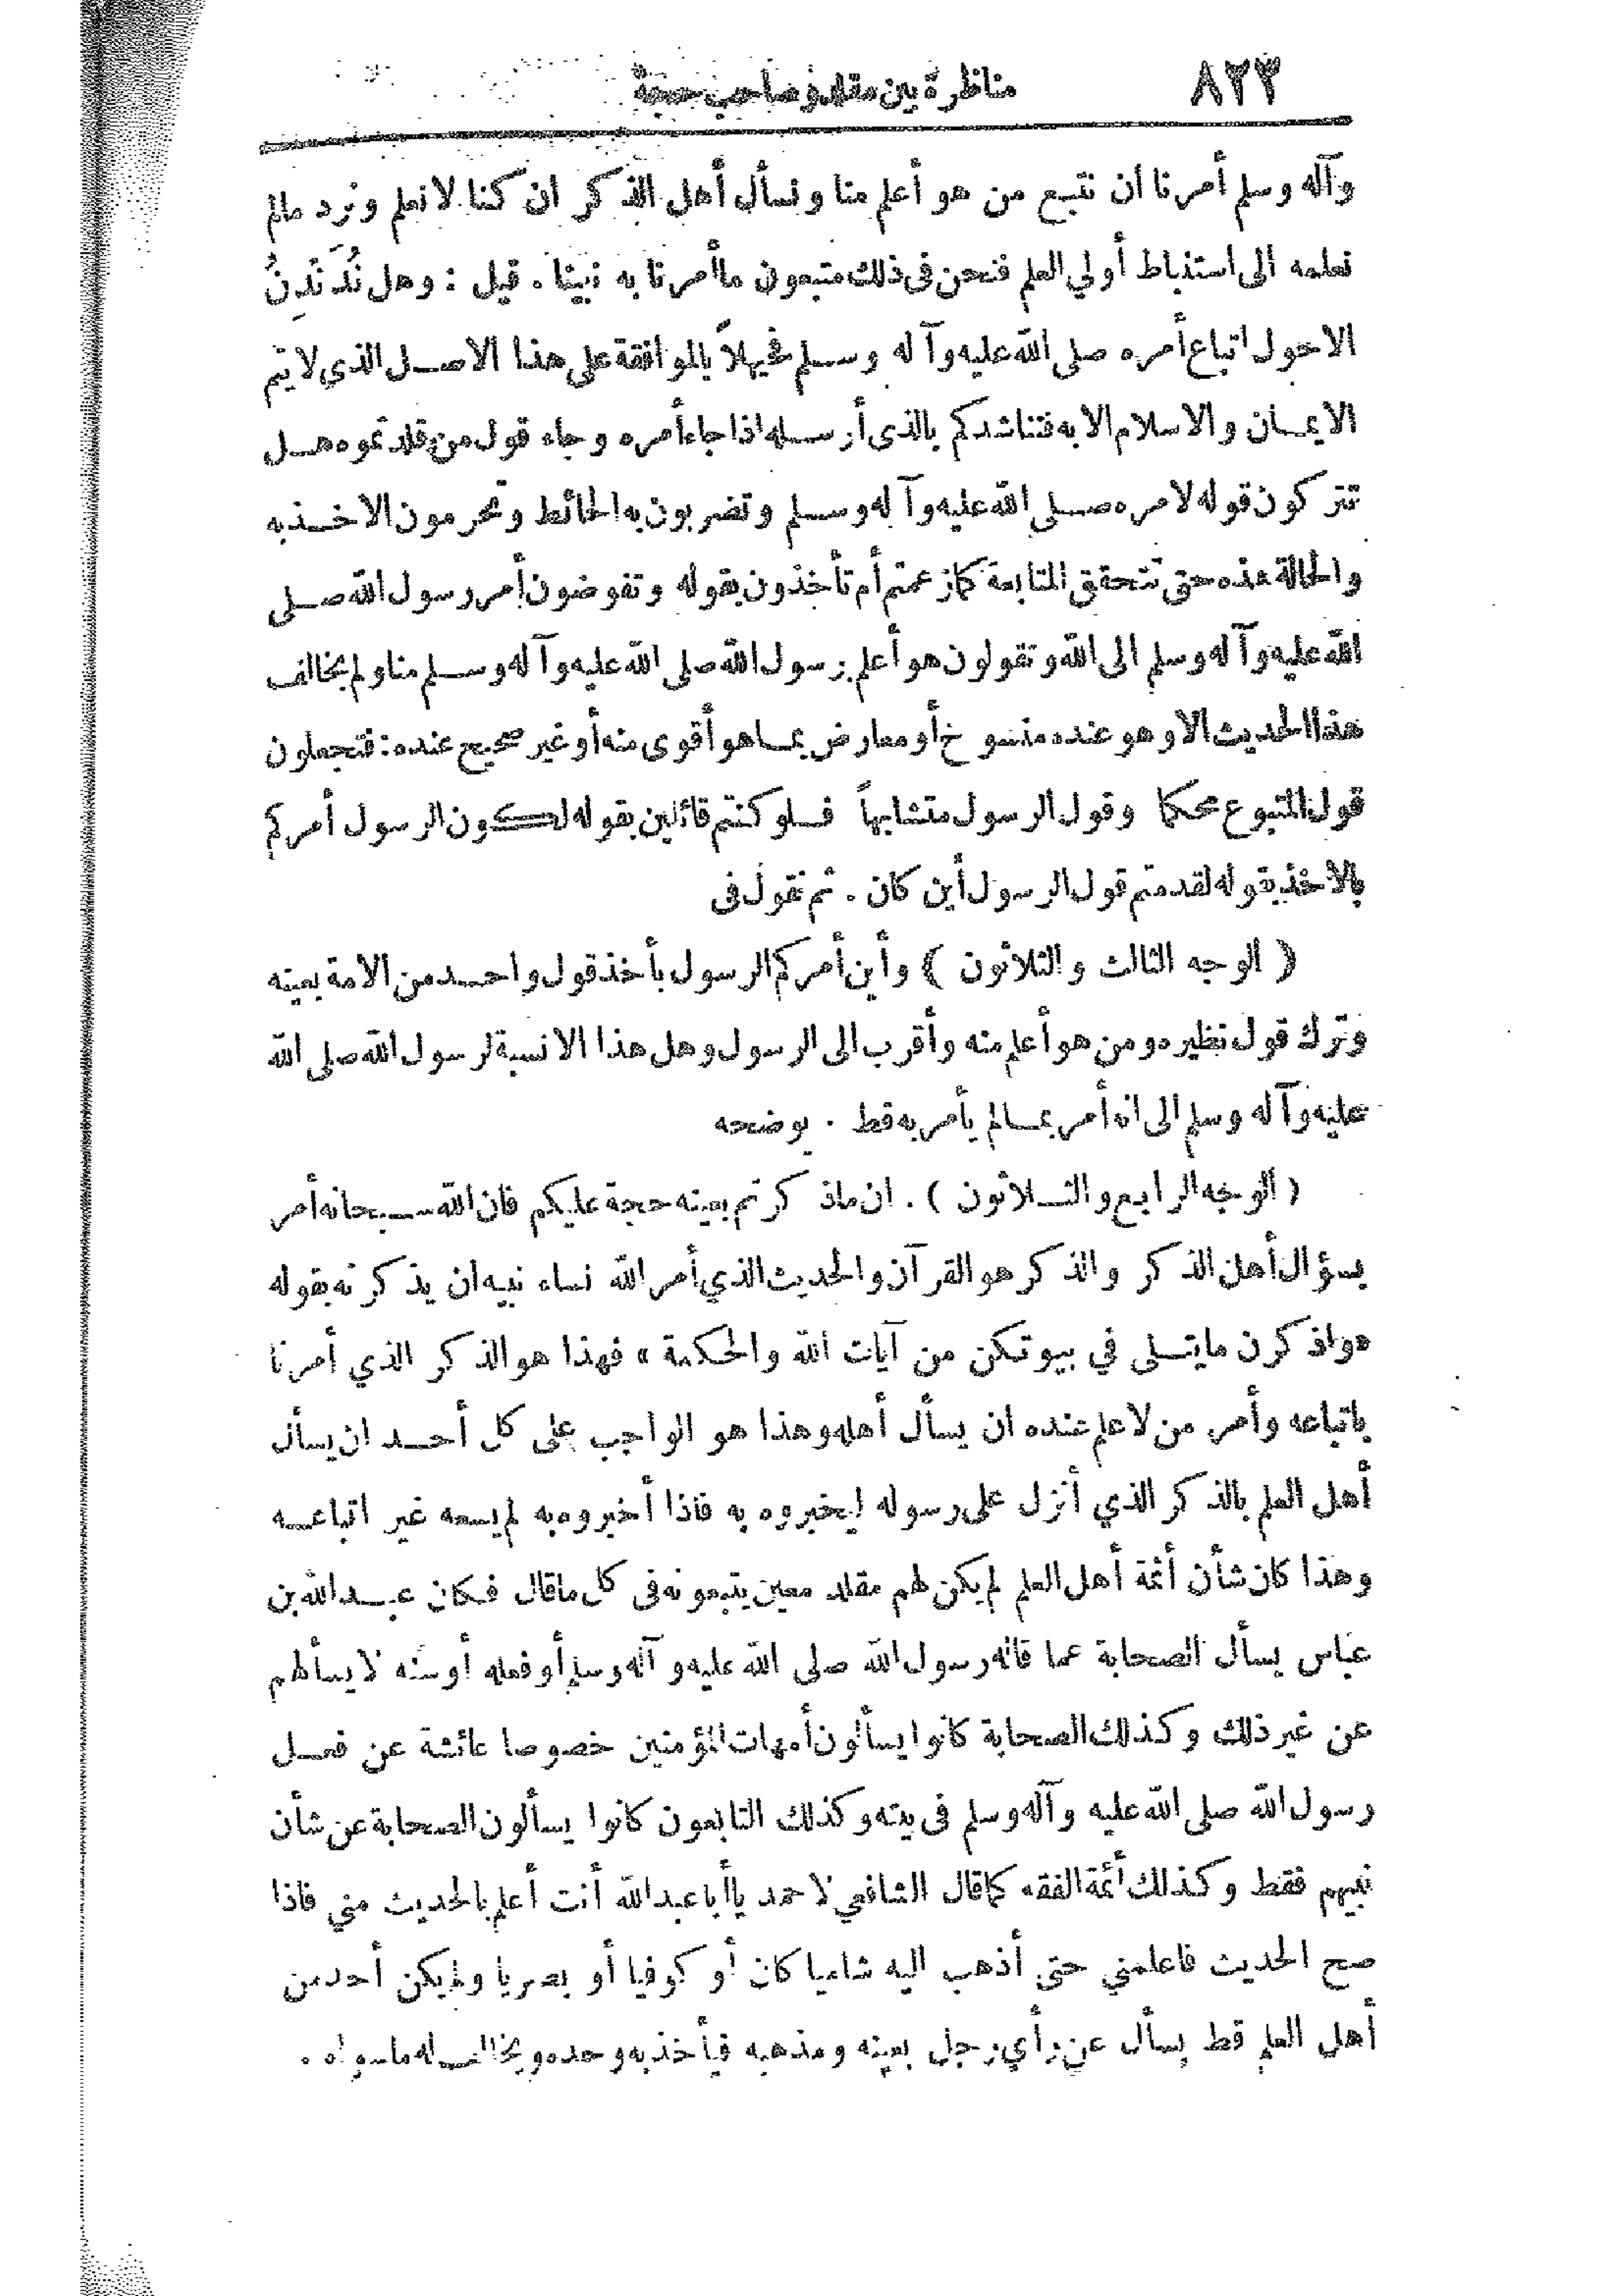 مناظرة بين مقلد وصاحب حجة ٨٢٣
وآله وسلم أمرنا أن نتبع من هو أعلم منا ونسأل أهل الذكر ان كنا لا نعلم ونرد مالم
نعلمه الى استنباط أولي العلم فنحن فى ذلك متبعون ما أمرنا به نبينا . قيل : وهل نُدَنْدِنُ
الا حول اتباع أمره صلى الله عليه وآله وسلم فحيهلاً بالموافقة على هذا الاصل الذي لا يتم
الايمان والاسلام الا به فنناشدكم بالذى أرسله اذا جاء أمره وجاء قول من قلدتموه هل
تتركون قوله لامره صلى الله عليه وآله وسلم وتضربون به الحائط وتحرمون الاخذ به
والحالة هذه حتى تتحقق المتابعة كما زعمتم أم تأخذون بقوله وتفوضون أمر رسول الله صلى
الله عليه وآله وسلم الى الله وتقولون هو أعلم برسول الله صلى الله عليه وآله وسلم منا ولم يخالف
هذا الحديث الا وهو عنده منسوخ أو معارض بما هو أقوى منه أو غير صحيح عنده : فتجعلون
قول المتبوع محكما وقول الرسول متشابهاً فلو كنتم قائلين بقوله لكون الرسول أمركم
بالاخذ بقوله لقدمتم قول الرسول أين كان . ثم نقول فى
( الوجه الثالث والثلاثون ) وأين أمركم الرسول بأخذ قول واحد من الامة بعينه
وترك قول نظيره ومن هو أعلم منه وأقرب الى الرسول وهل هذا الا نسبة لرسول الله صلى الله
عليه وآله وسلم الى انه أمر بما لم يأمر به قط . يوضحه
( الوجه الرابع والثلاثون ) . ان ما ذكرتم بعينه حجة عليكم فان الله سبحانه أمر
بسؤال أهل الذكر والذكر هو القرآن والحديث الذي أمر الله نساء نبيه ان يذكرنه بقوله
«واذكرن ما يتلى في بيوتكن من آيات الله والحكمة » فهذا هو الذكر الذي أمرنا
باتباعه وأمر من لا علم عنده ان يسأل أهله وهذا هو الواجب على كل أحد ان يسأل
أهل العلم بالذكر الذي أنزل على رسوله ليخبروه به فاذا أخبروه به لم يسعه غير اتباعه
وهذا كان شأن أئمة أهل العلم لم يكن لهم مقلد معين يتبعونه فى كل ما قال فكان عبد الله بن
عباس يسأل الصحابة عما قاله رسول الله صلى الله عليه وآله وسلم أو فعله أو سنه لا يسألهم
عن غير ذلك وكذلك الصحابة كانوا يسألون أمهات المؤمنين خصوصا عائشة عن فعل
رسول الله صلى الله عليه وآله وسلم فى بيته وكذلك التابعون كانوا يسألون الصحابة عن شأن
نبيهم فقط وكذلك أئمة الفقه كما قال الشافعي لاحمد يا أبا عبد الله أنت أعلم بالحديث مني فاذا
صح الحديث فاعلمني حتى أذهب اليه شاميا كان أو كوفيا أو بصريا ولم يكن أحد من
أهل العلم قط يسأل عن رأي رجل بعينه ومذهبه فيأخذ به وحده ويخالف له ما سواه .